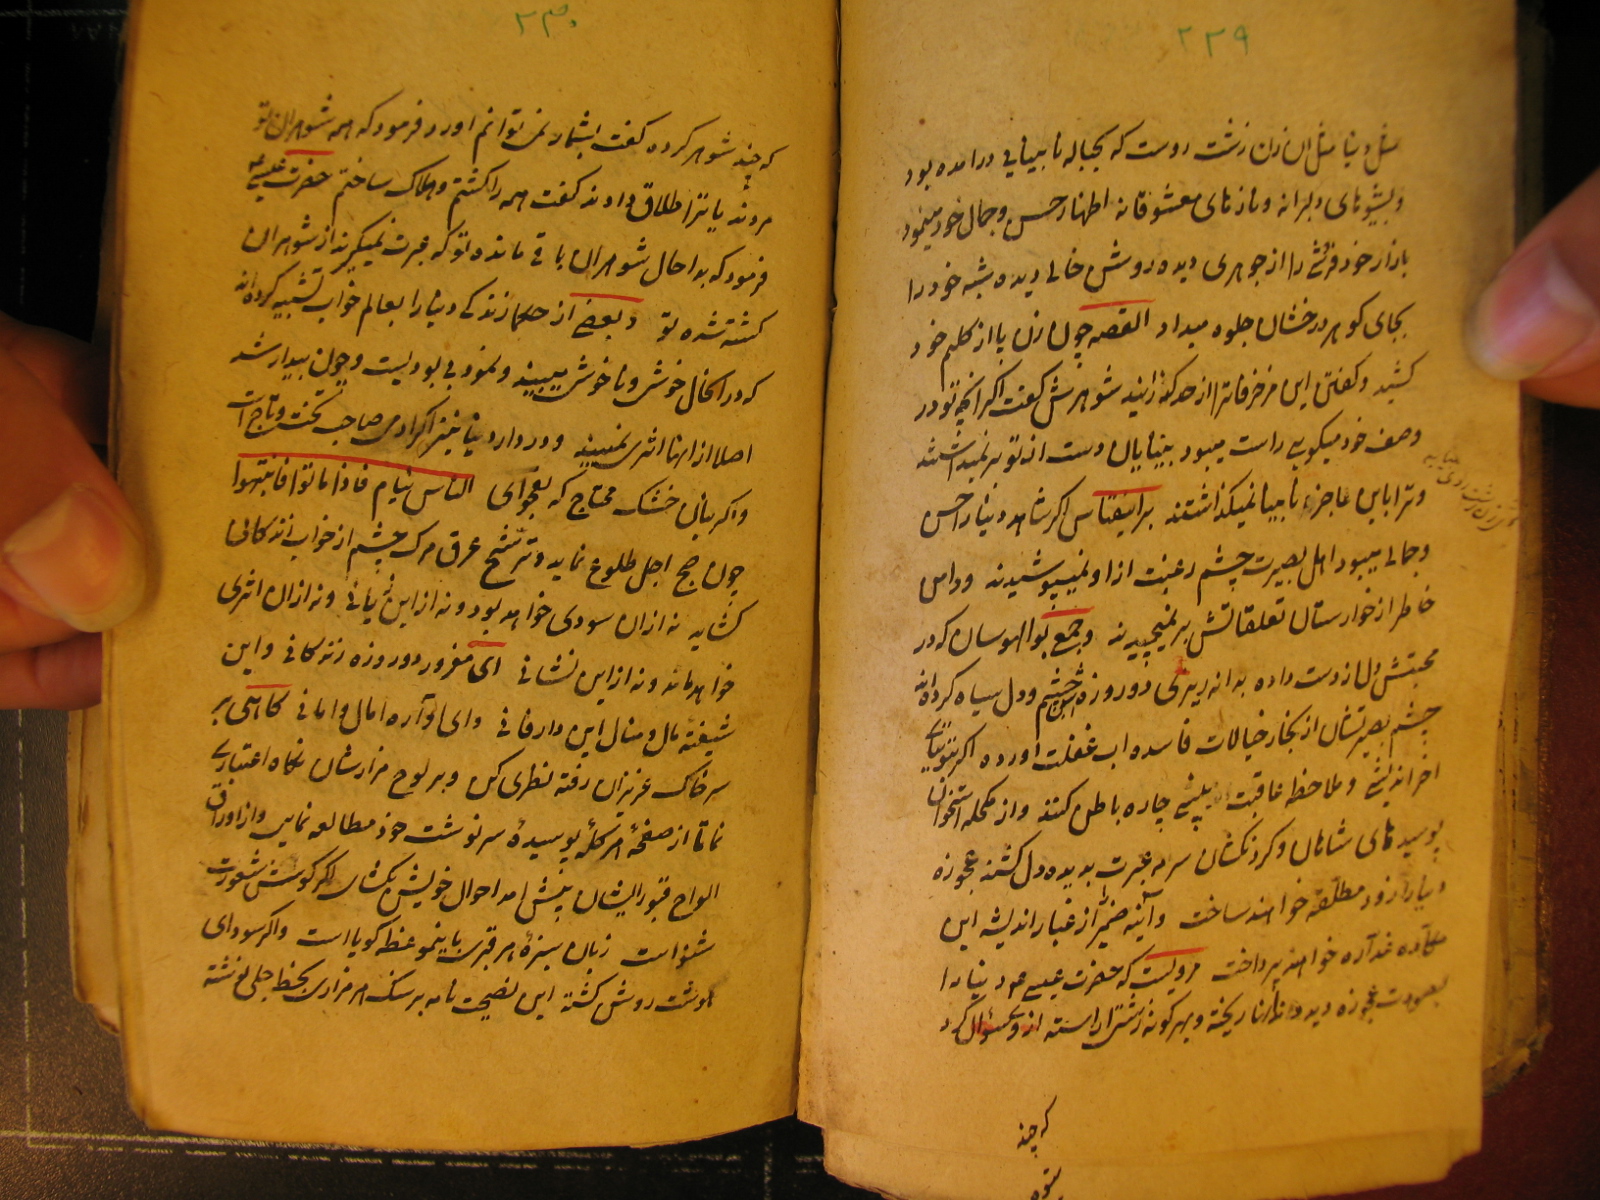 ۲۲۹
مثل دنیا مثل ان زن زشت روست که بحباله نابینایی درامده بود
و بشیوهای دلبرانه و نازهای معشوقانه اظهار حسن و جمال خود مینمود
بازار خود فروشی را از جوهری دیده روشن خالی دیده شبه خود را
بجای کوهر درخشان جلوه میداد القصه چون زن پا از کلیم خود
کشید و کفتن این مزخرفاترا از حد کذرانید شوهرش کفت اکر انچه تو در
وصف خود میکویی راست میبود بینایان دست از تو بر نمیداشتند
و ترا باین عاجز نابینا نمیکذاشتند براینقیاس اکر شاهد دنیا را حسن
و جمالی میبود اهل بصیرت چشم رغبت از او نمیپوشیدند و دامن
خاطر از خارستان تعلقاتش بر نمیچیدند و جمع بوالهوسان که در
محبتش دل از دست داده بدانه ریزی دو روزه چشم و دل سیاه کرده‌اند
چشم بصیرتشان از بخار خیالات فاسده اب غفلت اورده اکر بتوتیای
اخر اندیشی و ملاحظه عاقبت بینی چاره باطن کنند و از مکحله استخوان
پوسیدهای شاهان و کردنکشان سرمه عبرت بدیده دل کشند عجوزه
دنیا را زود مطلقه خواهند ساخت و آینه ضمیر از غبار اندیشه این
مکاره غداره خواهند پرداخت مرویست که حضرت عیسی ع دنیا را
بصورت عجوزه دید دندانها ریخته و بهر کونه زینت اراسته از وی سؤال کرد
که چند
۲۳۰
که چند شوهر کرده کفت بشمار نمی توانم اورد فرمود که همه شوهران تو
مردند یا ترا طلاق دادند کفت همه را کشتم و هلاک ساختم حضرت عیسی ع
فرمود که بدا حال شوهران باقی مانده تو که عبرت نمیکیرند از شوهران
کشته شده تو و بعضی از حکما زندکی دنیا را بعالم خواب تشبیه کرده‌اند
که در انحال خوش و ناخوش میبیند و نمود بی بودیست و چون بیدار شد
اصلا از انها اثری نمیبیند و در دار دنیا نیز اکر ادمی صاحب تخت و تاج است
و اکر بنان خشک محتاج که بفحوای الناس نیام فاذا ماتوا فانتبهوا
چون صبح اجل طلوع نماید و ترشح عرق مرک چشم از خواب زندکانی
کشاید نه از ان سودی خواهد بود و نه از این زیانی و نه از ان اثری
خواهد ماند و نه از این نشانی ای مغرور دو روزه زندکانی و این
شیفته مال و منال این دار فانی وای آواره امال و امانی کاهی بر
سر خاک عزیزان رفته نظری کن و بر لوح مزارشان نکاه اعتباری
نما تا از صفحهٔ هر کلهٔ پوسیدهٔ سرنوشت خود مطالعه نمایی و از اوراق
الواح قبور ایشان پیش امد احوال خویش بکشای اکر کوش شعورت
شنواست زبان سبزهٔ هر قبری باینموعظه کویاست و اکر سودای
نوشت روشن کشته این نصیحت نامه بر سنک هر مزاری بخط جلی نوشته